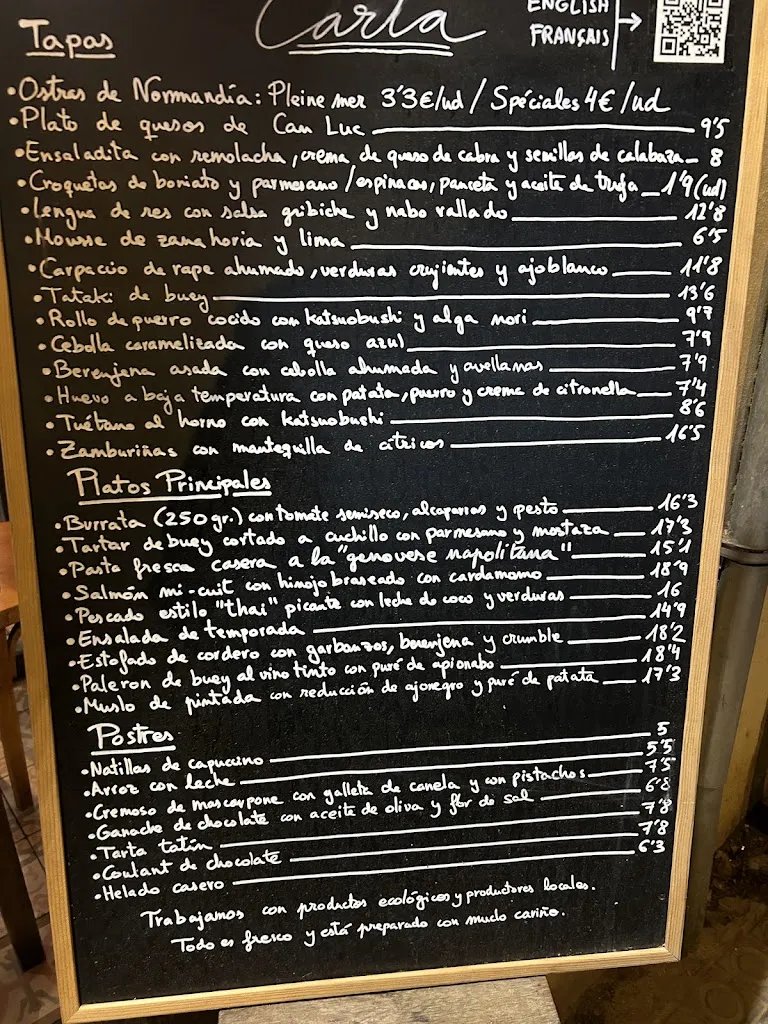 Carta
ENGLISH
FRANÇAIS
Tapas
•Ostras de Normandía: Pleine mer 3'3€/ud / Spéciales 4€/ud
•Plato de quesos de Can Luc 9'5
•Ensaladita con remolacha, crema de queso de cabra y semillas de calabaza 8
•Croquetas de boniato y parmesano/espinacas, panceta y aceite de trufa 1'9 (ud)
•Lengua de res con salsa gribiche y nabo rallado 12'8
•Mousse de zanahoria y lima 6'5
•Carpaccio de rape ahumado, verduras crujientes y ajoblanco 11'8
•Tataki de buey 13'6
•Rollo de puerro cocido con katsuobushi y alga nori 9'7
•Cebolla caramelizada con queso azul 7'9
•Berenjena asada con cebolla ahumada y avellanas 7'9
•Huevo a baja temperatura con patata, puerro y crema de citronella 7'4
•Tuétano al horno con katsuobushi 8'6
•Zamburiñas con mantequilla de cítricos 16'5
Platos Principales
•Burrata (250gr.) con tomate semiseco, alcaparras y pesto 16'3
•Tartar de buey cortado a cuchillo con parmesano y mostaza 17'3
•Pasta fresca casera a la "genovese napolitana" 15'1
•Salmón mi-cuit con hinojo braseado con cardamomo 18'9
•Pescado estilo "thai" picante con leche de coco y verduras 16
•Ensalada de temporada 14'9
•Estofado de cordero con garbanzos, berenjena y crumble 18'2
•Paleron de buey al vino tinto con puré de apionabo 18'4
•Muslo de pintada con reducción de ajonegro y puré de patata 17'3
Postres
•Natillas de capuccino 5
•Arroz con leche 5'5
•Cremoso de mascarpone con galleta de canela y con pistachos 7'5
•Ganache de chocolate con aceite de oliva y flor de sal 6'8
•Tarta tatin 7'8
•Coulant de chocolate 7'8
•Helado casero 6'3
Trabajamos con productos ecológicos y productores locales.
Todo es fresco y está preparado con mucho cariño.